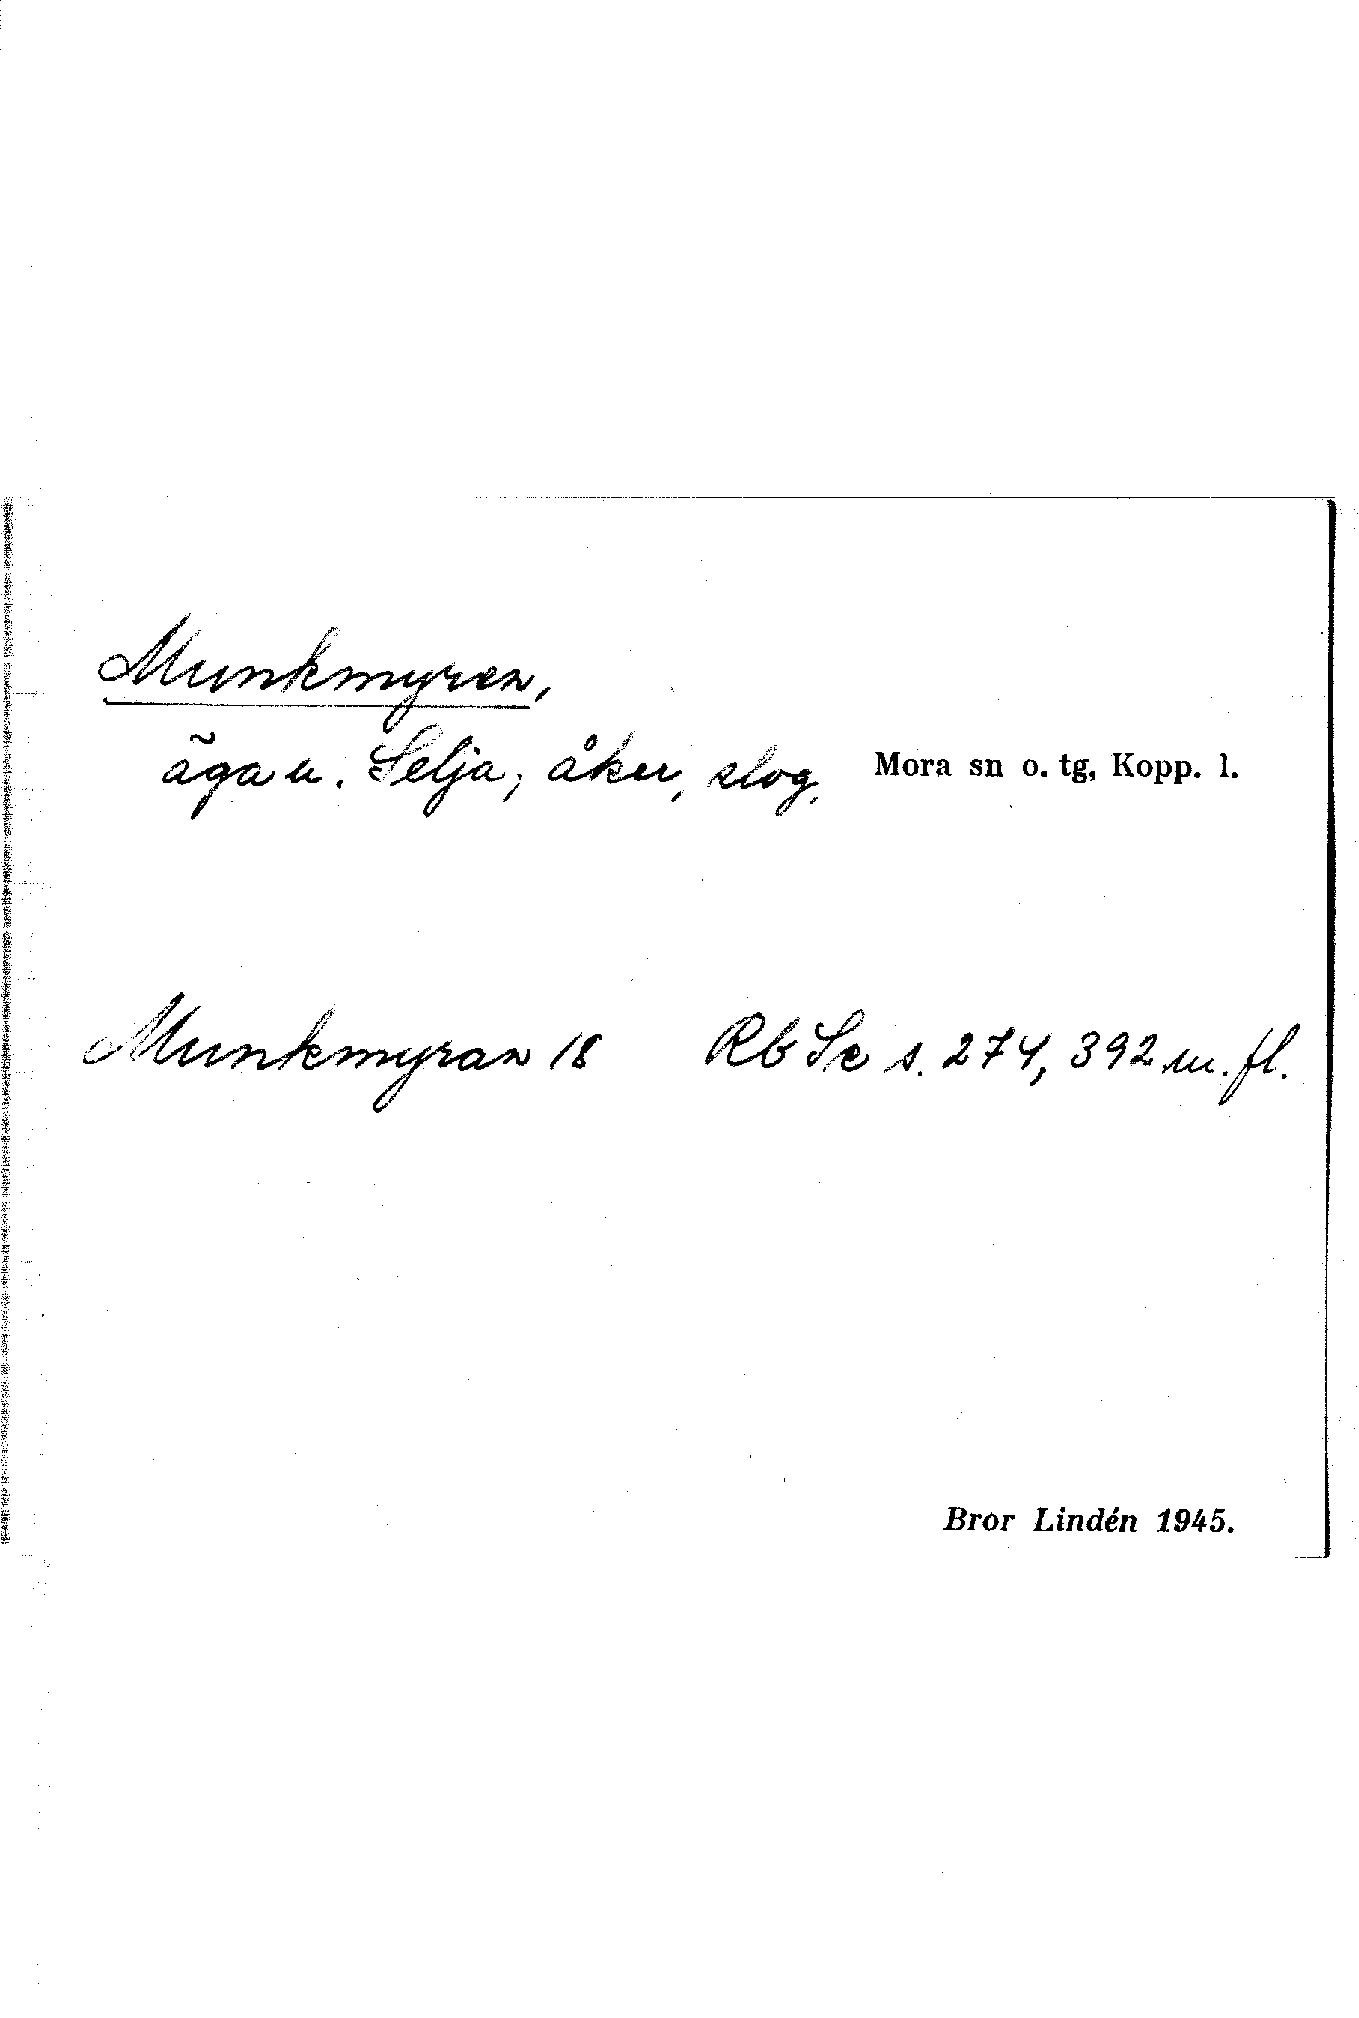 Munkmyren,
äga u. Selja; åker, slog, Mora sn o. tg, Kopp. l.
Munkmyran 18 Rb Se s. 274, 392 m. fl.
Bror Lindén 1945.